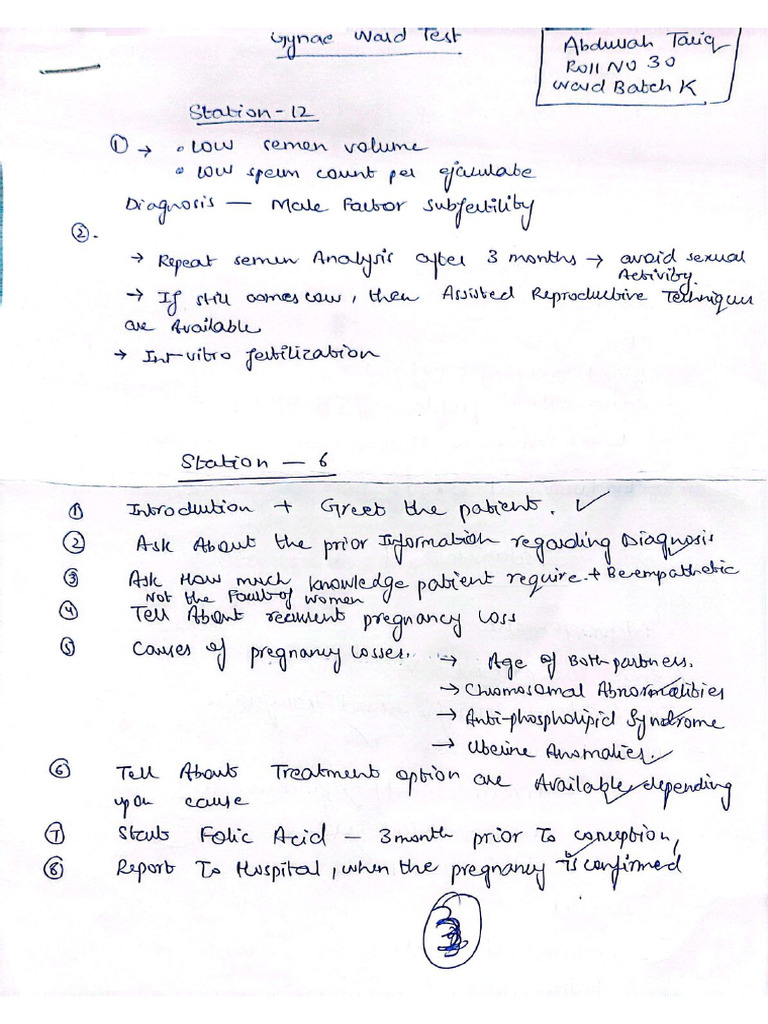 Gynae Ward Test
Abdullah Tariq
Roll No 30
Ward Batch K
Station-12
① → • Low semen volume
• Low sperm count per ejaculate
Diagnosis — Male Factor Subfertility
②.
→ Repeat semen Analysis after 3 months → avoid sexual
Activity.
→ If still comes low, then Assisted Reproductive Techniques
are Available
→ Int-vitro fertilization
Station — 6
① Introduction + Greet the patient. ✓
② Ask About the prior Information regarding Diagnosis
③ Ask How much knowledge patient require + Be empathetic
Not the Fault of women
④ Tell About recurrent pregnancy loss
⑤ Causes of pregnancy losses. → Age of Both partners.
→ Chromosomal Abnormalities
→ Anti-phospholipid Syndrome
→ Uterine Anomalies.
⑥ Tell About Treatment option are Available depending
upon cause
⑦ Start Folic Acid — 3 month prior To conception,
⑧ Report To Hospital, when the pregnancy is confirmed
3